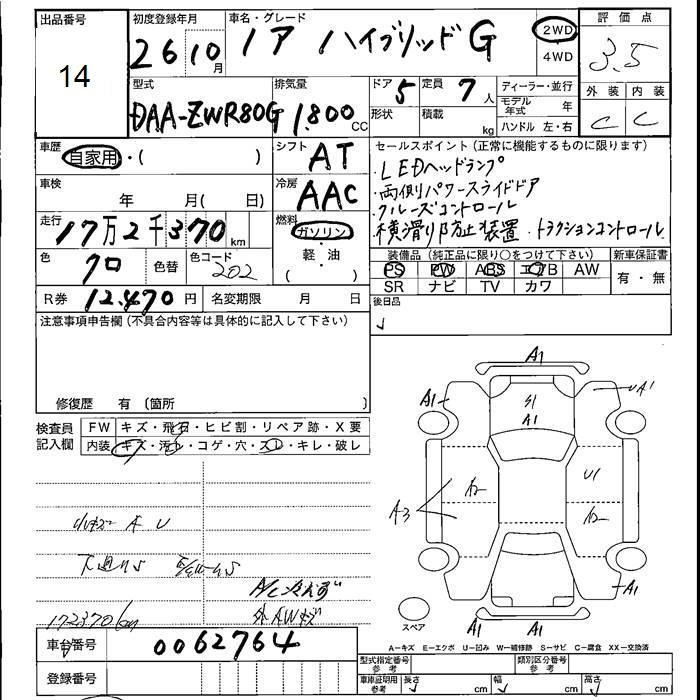 出品番号 初度登録年月 車名・グレード 評価点
14 26 10月 ノア ハイブリッドG 2WD 4WD 3.5
型式 排気量 ドア 定員 ディーラー・並行 外装 内装
DAA-ZWR80G 1,800 CC 5 7人 モデル年式 年 C C
形状 積載 kg ハンドル 左・右
車歴 シフト セールスポイント (正常に機能するものに限ります)
自家用・( ) AT ・LEDヘッドランプ
車検 冷房 ・両側パワースライドドア
年 月( 日) AAC ・クルーズコントロール
走行 燃料 ・横滑り防止装置 ・トラクションコントロール
17万2千370km ガソリン・軽・油( )
色 色替 色コード 装備品 (純正品に限り○をつけて下さい) 新車保証書
クロ 202 PS PW ABS エアB AW 有・無
R券 12,470円 名変期限 月 日 SR ナビ TV カワ
注意事項申告欄 (不具合内容等は具体的に記入して下さい) 後日品
修復歴 有 (箇所 )
検査員記入欄 FW キズ・飛石・ヒビ割・リペア跡・X要
内装 キズ・汚レ・コゲ・穴・スレ・キレ・破レ
A1
A1 S1 A1 U A1
A2 U1
A3 A2
小キズ A U
下廻りS
172370km 外AWキズ
A1
スペア A1 A1
A−キズ E−エクボ U−凹み W−補修跡 S−サビ C−腐食 XX−交換済
車台番号 0062764
型式指定番号 参考 類別区分番号 参考
登録番号 車庫証明用 参考 長さ cm 幅 cm 高さ cm